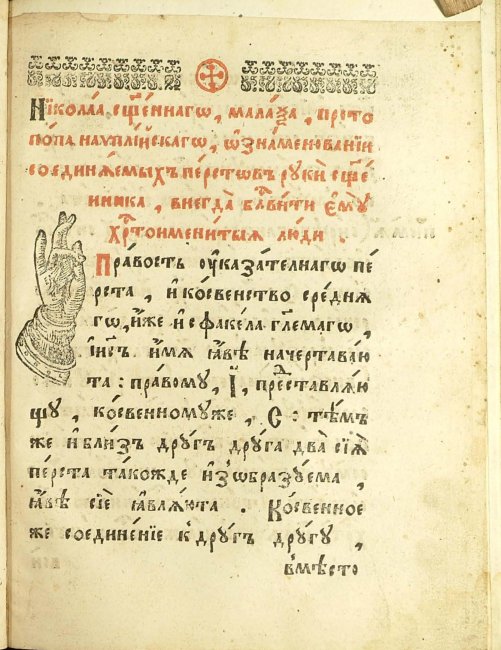 Нїколаа сщ҃еннагѡ, мала́ѯа, прѡто
по́па наѵплі́йскагѡ, ѡ҆ зна́менованїи
соединѧ́емыхъ пе́рстѡвъ рꙋкѝ сщ҃е́
нника, внегда̀ блг҃ви́ти є҆мꙋ̀
хрⷭ҇тоимени́тыѧ лю́ди.
Пра́вость ᲂу҆каза́телнагѡ пе́
рста, и҆ ко́свенство сре́днѧ
гѡ, и҆́же и҆ сфакела гл҃емагѡ,
і҆и҃съ и҆́мѧ ꙗ҆́вѣ начертава́ю
та: пра́вомꙋ, Ї, предⷭ҇тавлѧ́ю
щꙋ, ко́свенномꙋже, С: тѣ́мъ
же и҆ бли́зъ дрꙋ́гъ дрꙋ́га два̀ сїѧ̑
пе́рста та́кожде и҆зѡбразꙋ́ема,
ꙗ҆́вѣ сїѐ ꙗ҆влѧ́юта. Ко́свенное
же соедине́нїе к̾ дрꙋ́гъ дрꙋ́гꙋ,
вмѣ́сто